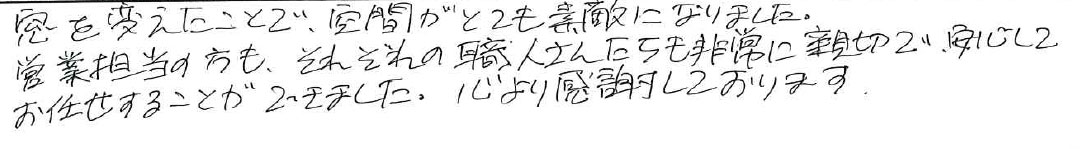 窓を変えたことで、空間がとても素敵になりました。
営業担当の方も、それぞれの職人さんたちも非常に親切で、安心して
お任せすることができました。心より感謝しております.